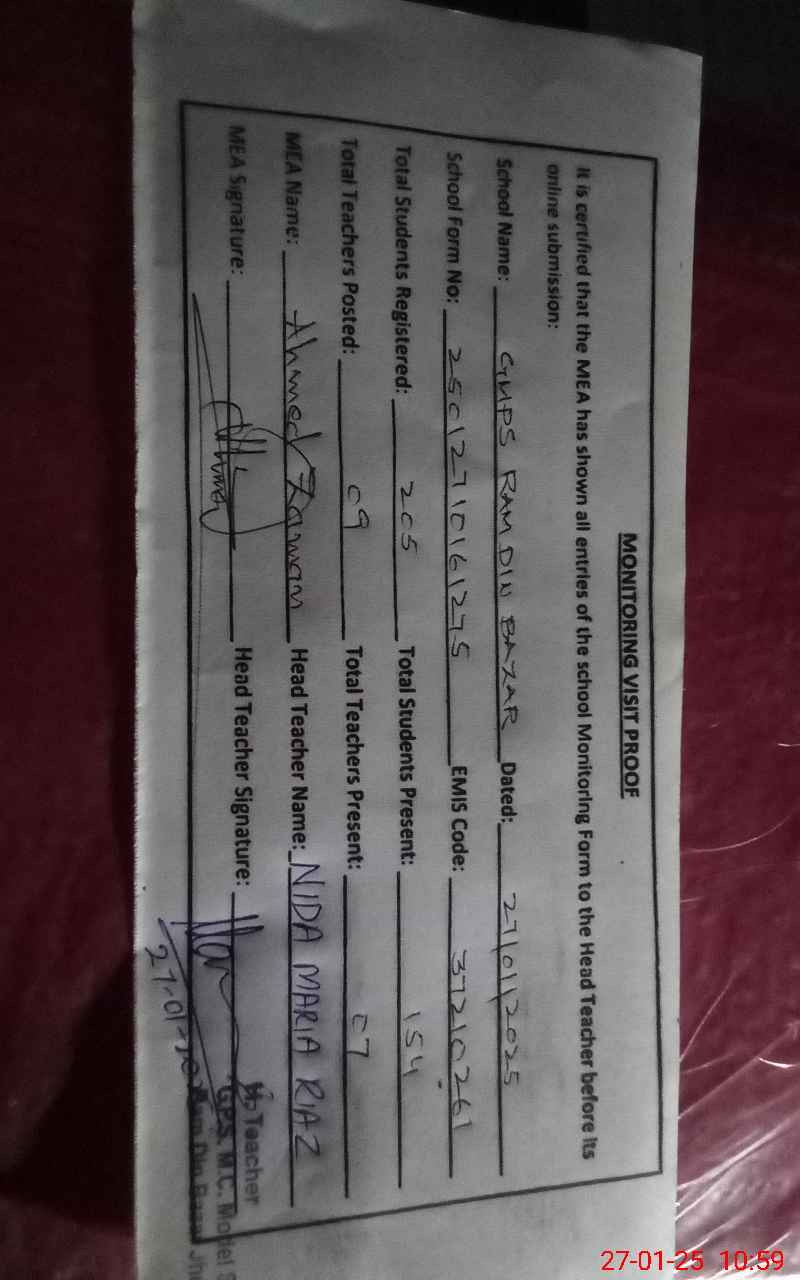 MONITORING VISIT PROOF
It is certified that the MEA has shown all entries of the school Monitoring Form to the Head Teacher before its
online submission:
School Name: GMPS RAM DIN BAZAR Dated: 27/01/2025
School Form No: 25012710161275 EMIS Code: 37210261
Total Students Registered: 205 Total Students Present: 154
Total Teachers Posted: 09 Total Teachers Present: 07
MEA Name: Ahmed Zaman Head Teacher Name: NIDA MARIA RIAZ
MEA Signature: Head Teacher Signature:
27-01-
H. Teacher
GPS. M.C. Model
Ram Din Bazar
27-01-25 10:59